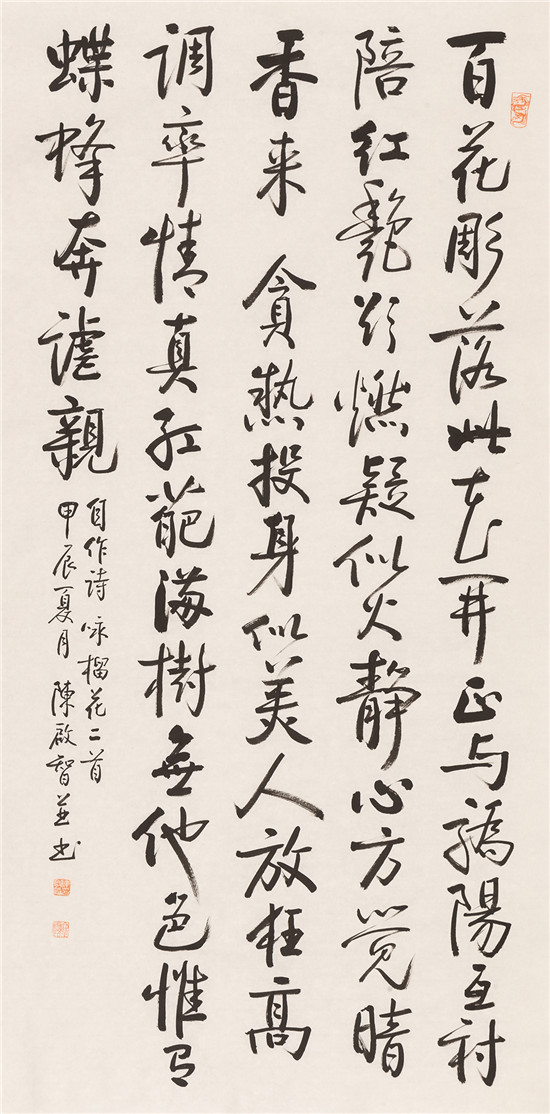 百花彫落此花开正与驕陽互衬
陪红艷欲燃疑似火靜心方觉暗
香来 貪热投身似美人放狂高
调率情真红葩满樹無他色惟有
蝶蜂奔谑親
自作诗咏榴花二首
甲辰夏月 陳啟智並书